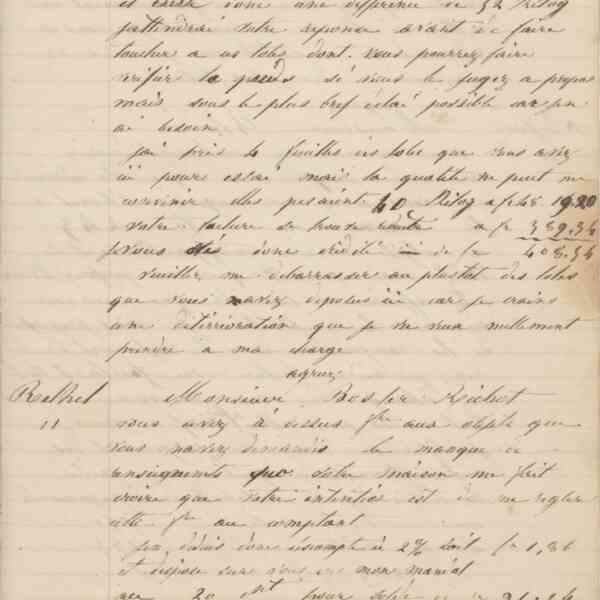 et existe donc une difference de 32 Kilog
j'attendrai votre reponse avant de faire
toucher a ces toles dont vous pourrez faire
verifier le poids si vous le jugez a propos
mais sous le plus bref délai possible car j'en
ai besoin
j'ai pris 6 feuilles des toles que vous avez
ici pour essai mais la qualité ne peut me
convenir elles pesaient 40 Kilog a f 48 19,20
votre facture de a fr 389.34
Vous donc crédité de fr 408.54
Veuillez me debarrasser au plustot des toles
que vous m'avez deposées ici car je crains
une déterrioration que je ne veux nullement
prendre a ma charge
agreez
Rethel Monsieur Rosfer Richot
11 vous avez ci dessus fre aux objets que
vous m'avez demandés le manque de
renseignements que votre maison me fait
croire que votre intention est de me regler
cette fre au comptant
j'en déduis donc escompte à 2% soit fr 1,36
et dispose sur vous en mon mandat
au 20 pour solde de